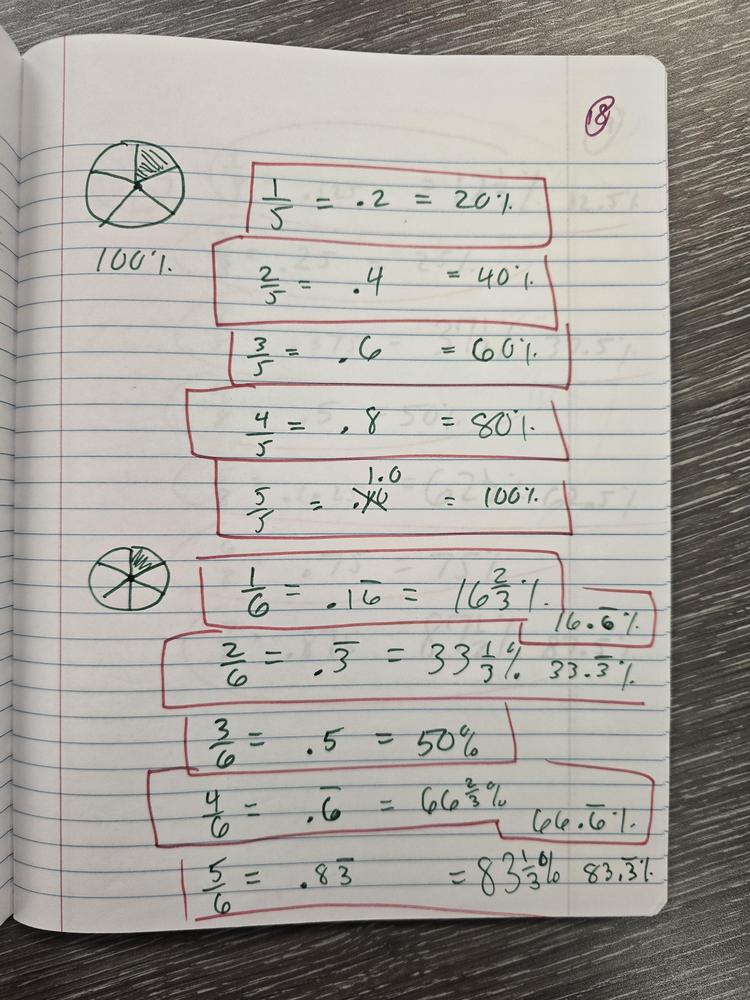 18
1/5 = .2 = 20%
100%
2/5 = .4 = 40%
3/5 = .6 = 60%
4/5 = .8 = 80%
1.0
5/5 = .10 = 100%
1/6 = .16̅ = 16 2/3%
16.6̅%
2/6 = .3̅ = 33 1/3% 33.3̅%
3/6 = .5 = 50%
4/6 = .6̅ = 66 2/3%
66.6̅%
5/6 = .83̅ = 83 1/3% 83.3̅%